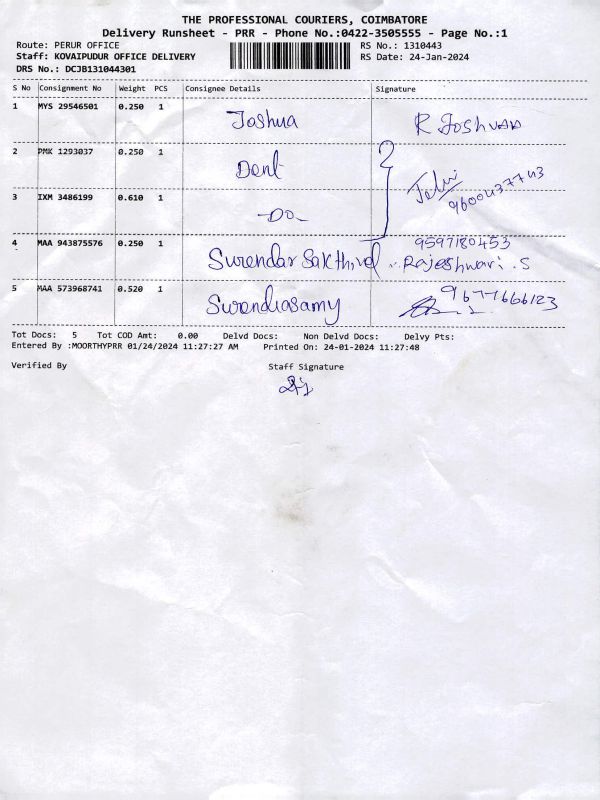 THE PROFESSIONAL COURIERS, COIMBATORE
Delivery Runsheet - PRR - Phone No.:0422-3505555 - Page No.:1
Route: PERUR OFFICE RS No.: 1310443
Staff: KOVAIPUDUR OFFICE DELIVERY RS Date: 24-Jan-2024
DRS No.: DCJB131044301
S No Consignment No Weight PCS Consignee Details Signature
1 MYS 29546501 0.250 1 Joshua R Joshuaa
2 PMK 1293037 0.250 1 Dent
3 IXM 3486199 0.610 1 -DO-
9600437743
4 MAA 943875576 0.250 1 Surendar Sakthivel 9597180453
Rajeshwari .S
5 MAA 573968741 0.520 1 Surendrasamy 9677666123
Tot Docs: 5 Tot COD Amt: 0.00 Delvd Docs: Non Delvd Docs: Delvy Pts:
Entered By :MOORTHYPRR 01/24/2024 11:27:27 AM Printed On: 24-01-2024 11:27:48
Verified By Staff Signature